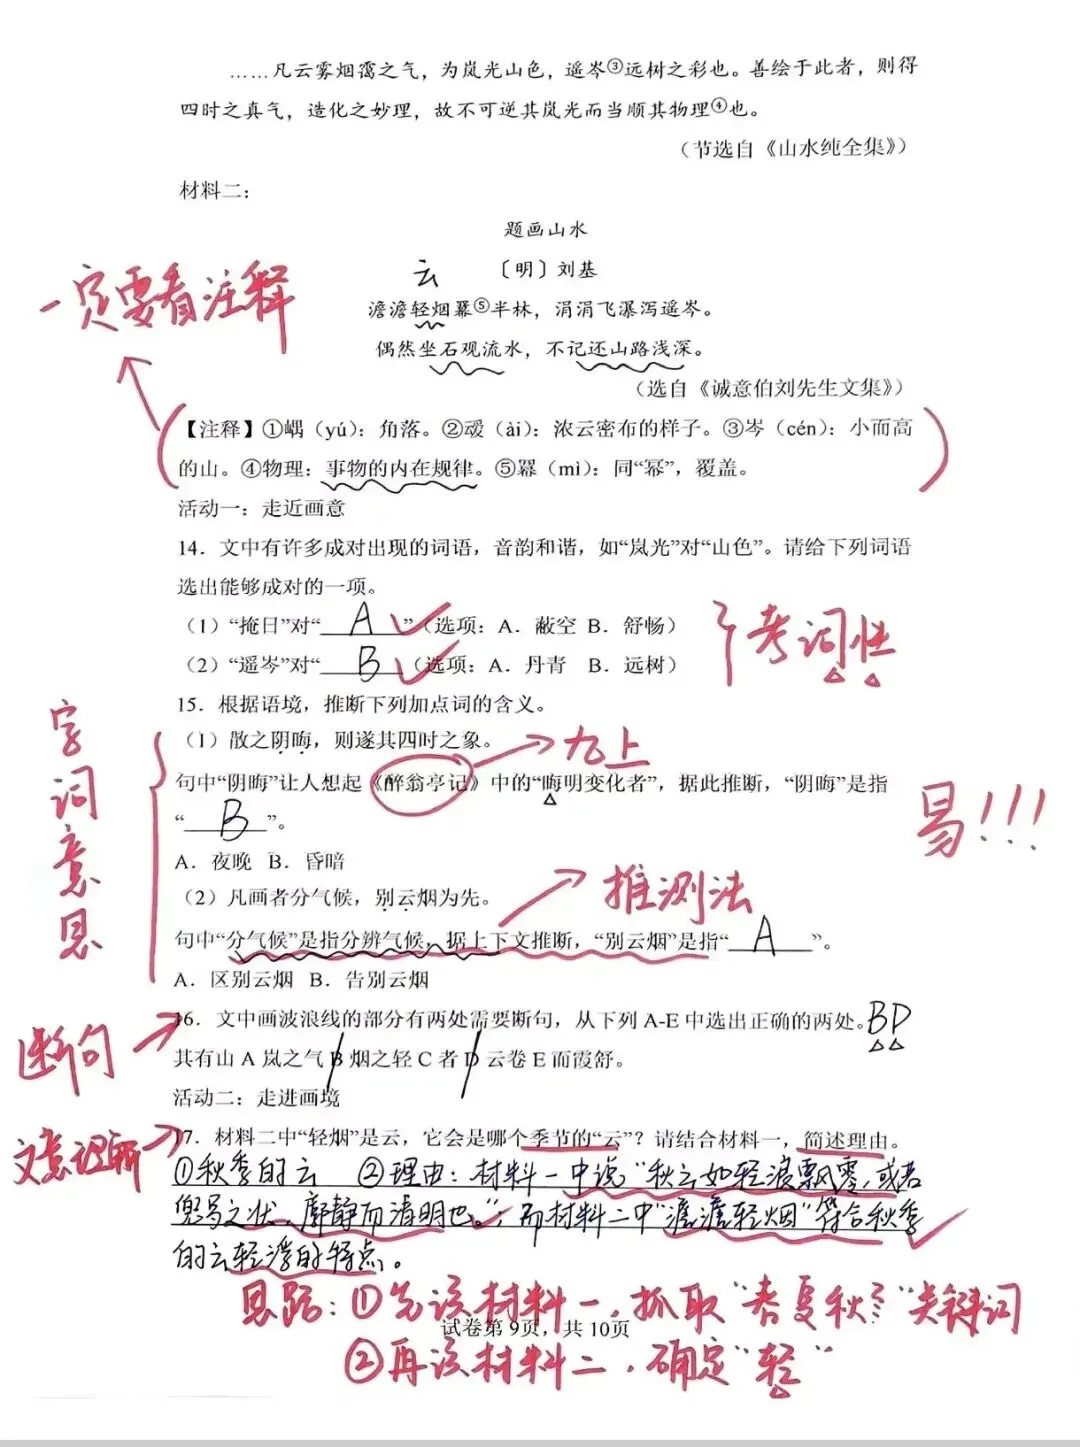 ……凡云雾烟霭之气，为岚光山色，遥岑③远树之彩也。善绘于此者，则得
四时之真气，造化之妙理，故不可逆其岚光而当顺其物理④也。
（节选自《山水纯全集》）
材料二：
题画山水
云
〔明〕刘基
一定要看注释
澹澹轻烟羃⑤半林，涓涓飞瀑泻遥岑。
偶然坐石观流水，不记还山路浅深。
（选自《诚意伯刘先生文集》）
【注释】①嵎（yú）：角落。②叆（ài）：浓云密布的样子。③岑（cén）：小而高
的山。④物理：事物的内在规律。⑤羃（mì）：同“幂”，覆盖。
活动一：走近画意
14．文中有许多成对出现的词语，音韵和谐，如“岚光”对“山色”。请给下列词语
选出能够成对的一项。
（1）“掩日”对“ A ”（选项：A．蔽空 B．舒畅）
考词性
（2）“遥岑”对“ B （选项：A．丹青 B．远树）
15．根据语境，推断下列加点词的含义。
字词意思
（1）散之阴晦，则遂其四时之象。
九上
句中“阴晦”让人想起《醉翁亭记》中的“晦明变化者”，据此推断，“阴晦”是指
“ B ”。
易!!!
A．夜晚 B．昏暗
（2）凡画者分气候，别云烟为先。
推测法
句中“分气候”是指分辨气候，据上下文推断，“别云烟”是指“ A ”。
A．区别云烟 B．告别云烟
断句
16．文中画波浪线的部分有两处需要断句，从下列 A-E 中选出正确的两处。BD
其有山 A 岚之气 B 烟之轻 C 者 D 云卷 E 而霞舒。
活动二：走进画境
文意理解
17．材料二中“轻烟”是云，它会是哪个季节的“云”？请结合材料一，简述理由。
①秋季的云 ②理由：材料一中说“秋云如轻浪飘零，或若
兜鸟之状，廓静而清明也。”；而材料二中“澹澹轻烟”符合秋季
的云轻浮的特点。
思路：①先读材料一，抓取“春夏秋冬”关键词
试卷第 9页，共 10页
②再读材料二，确定“轻”